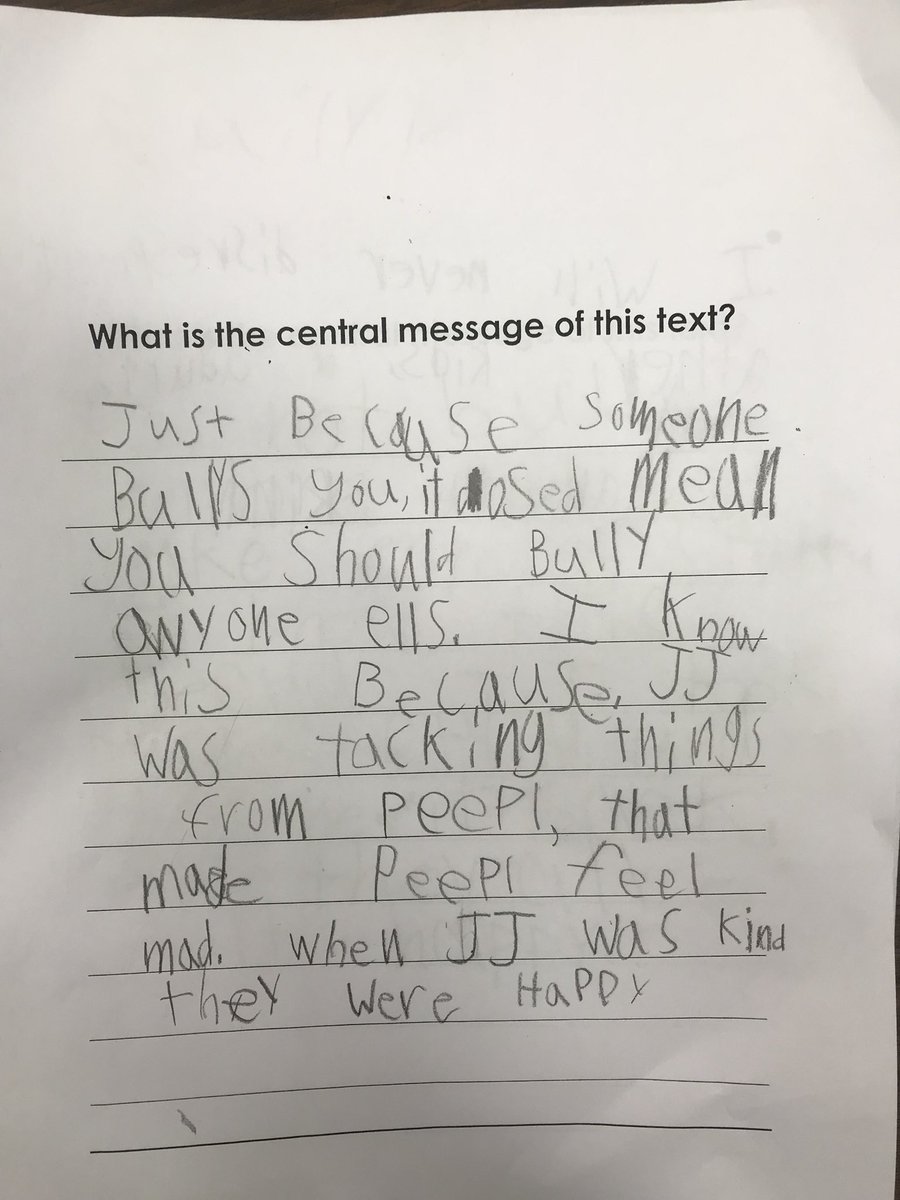 What is the central message of this text?
Just Because Someone
Bullys you, it dosed Mean
you Should Bully
anyone ells. I Know
this Because, JJ
was tacking things
from PeePl, that
made PeePl feel
mad. when JJ was kind
they were HaPPy